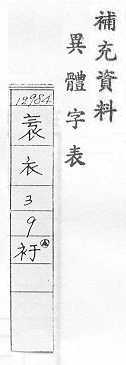 補充資料
異體字表
12984
衣
3
9
衧